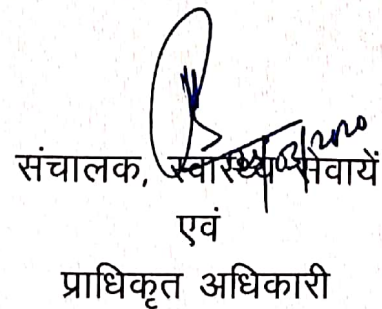 संचालक, स्वास्थ्य सेवायें
एवं
प्राधिकृत अधिकारी